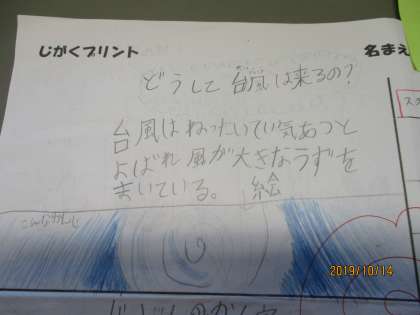 じがくプリント
名まえ
どうして台風は来るの?
台風はねったいてい気あつと
よばれ風が大きなうずを
まいている。 絵
こんなかんじ
2019/10/14